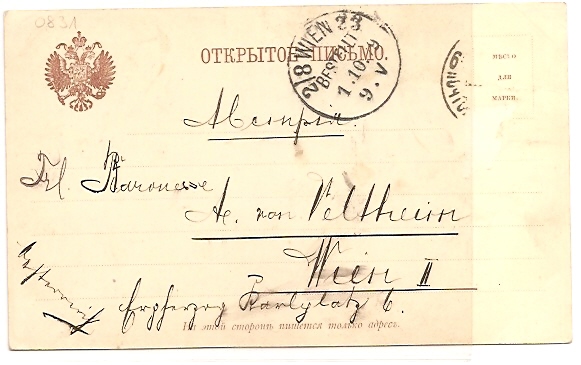 083A
ОТКРЫТОЕ ПИСЬМО.
2/8 WIEN 23
BESTELLT
9. V
МѢСТО
ДЛЯ
МАРКИ.
Австрiя.
Frl. Baronesse
A. von Veltheim
Wien II
Oesterreich
Erzherzog Karlplatz 6.
На этой сторонѣ пишется только адресъ.